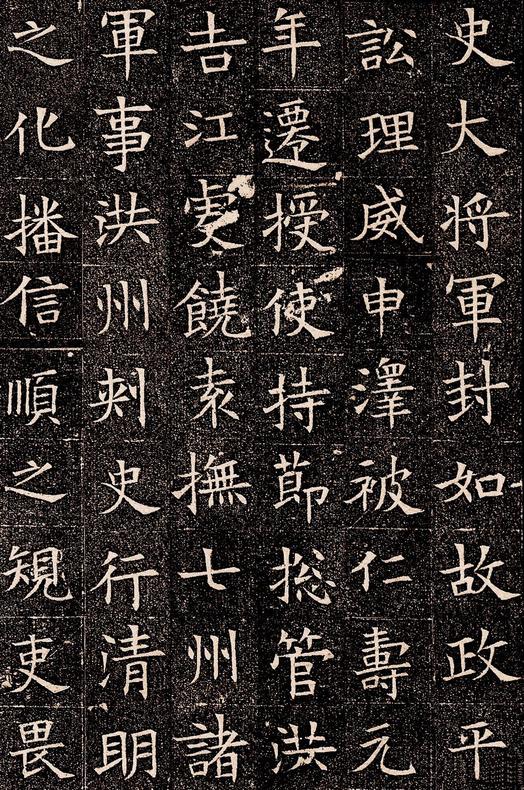 史大将軍封如故政平
訟理威申澤被仁壽元
年遷授使持節揔管洪
吉江虔饒袁撫七州諸
軍事洪州刺史行清明
之化播信順之規吏畏